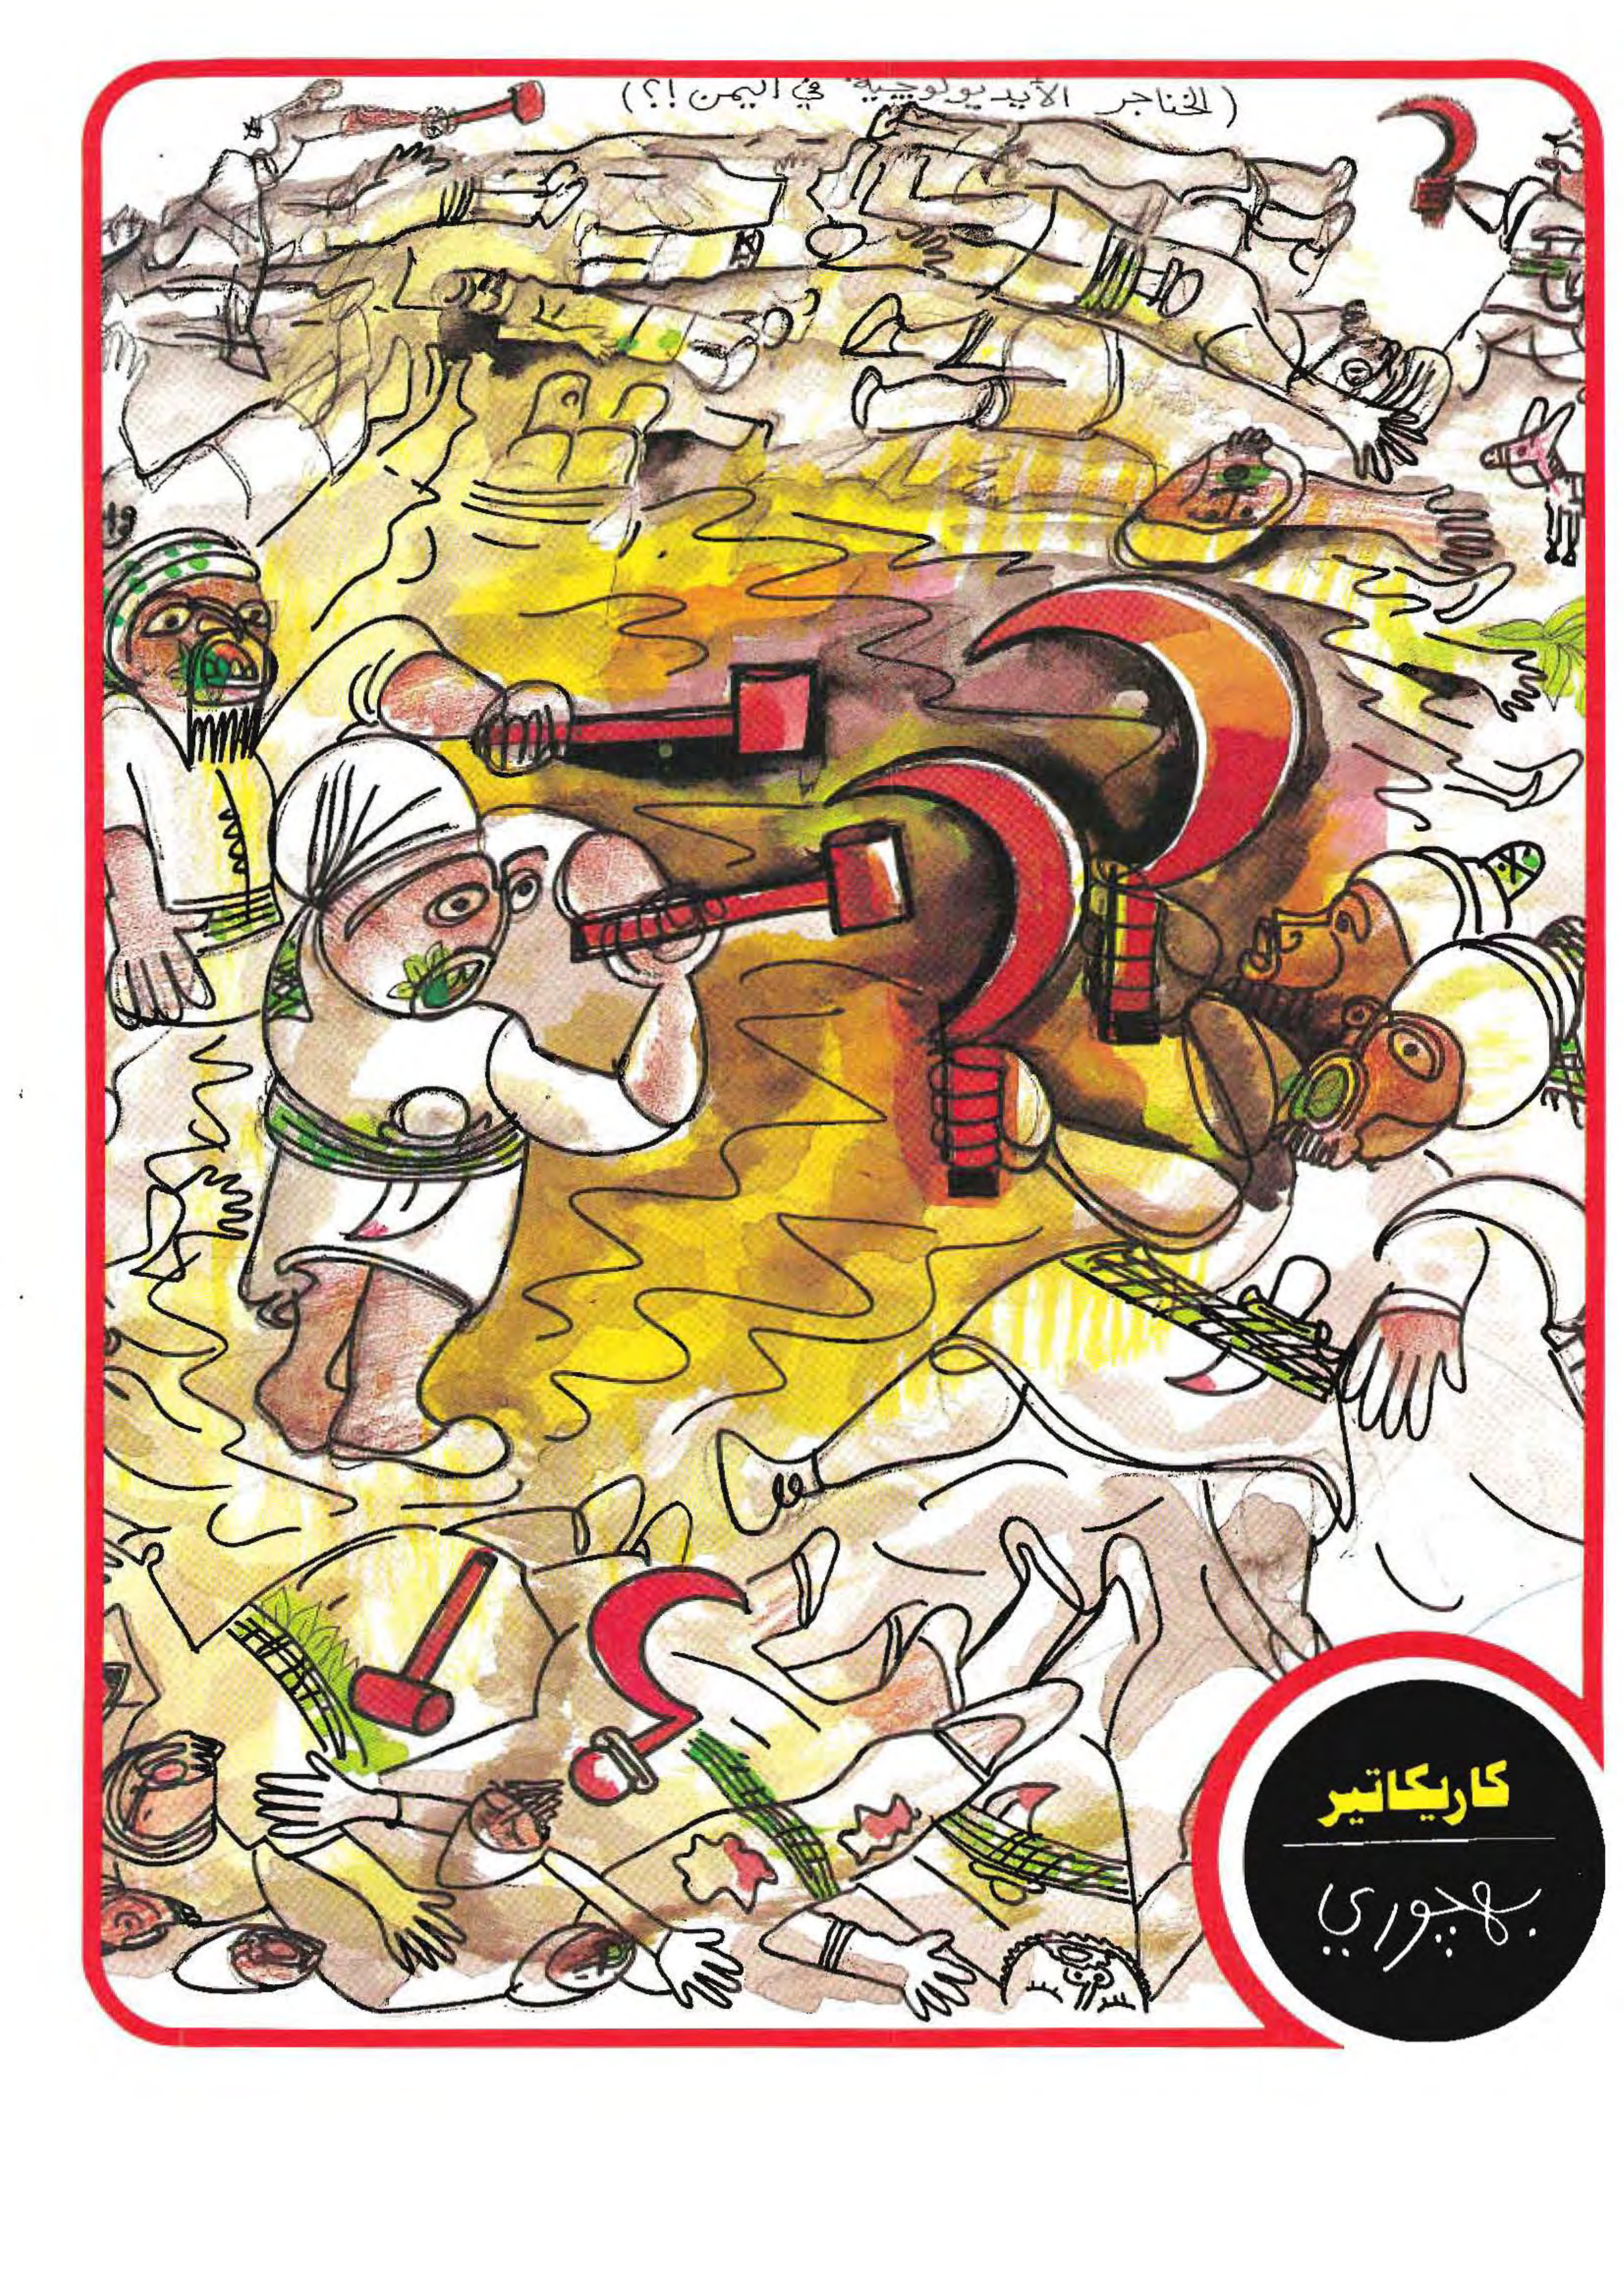 (الخناجر الأيديولوچية في اليمن!؟)
كاريكاتير
بهچوري